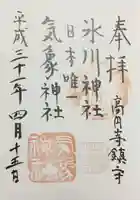 奉拝
高円寺鎮守
氷川神社
日本唯一
気象神社
平成三十一年四月十五日
気象神社